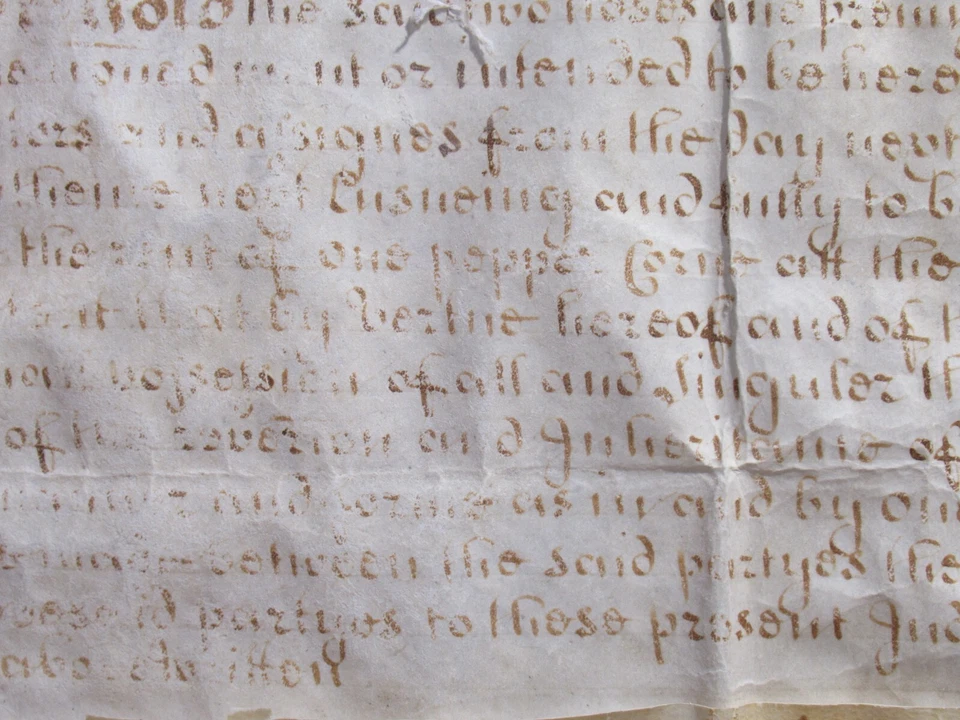 hold the said two closes and premi
menconed ment or intended to be here
ters and assignes from the day next
thence next Ensueing and fully to b
the rent of one pepper Corne att the
tent that by Vertue hereof and of t
possession of all and singuler th
of the revercon and Inheritance of
and terme as in and by one
made between the said partyes the
said partyes to these present Ind
above written